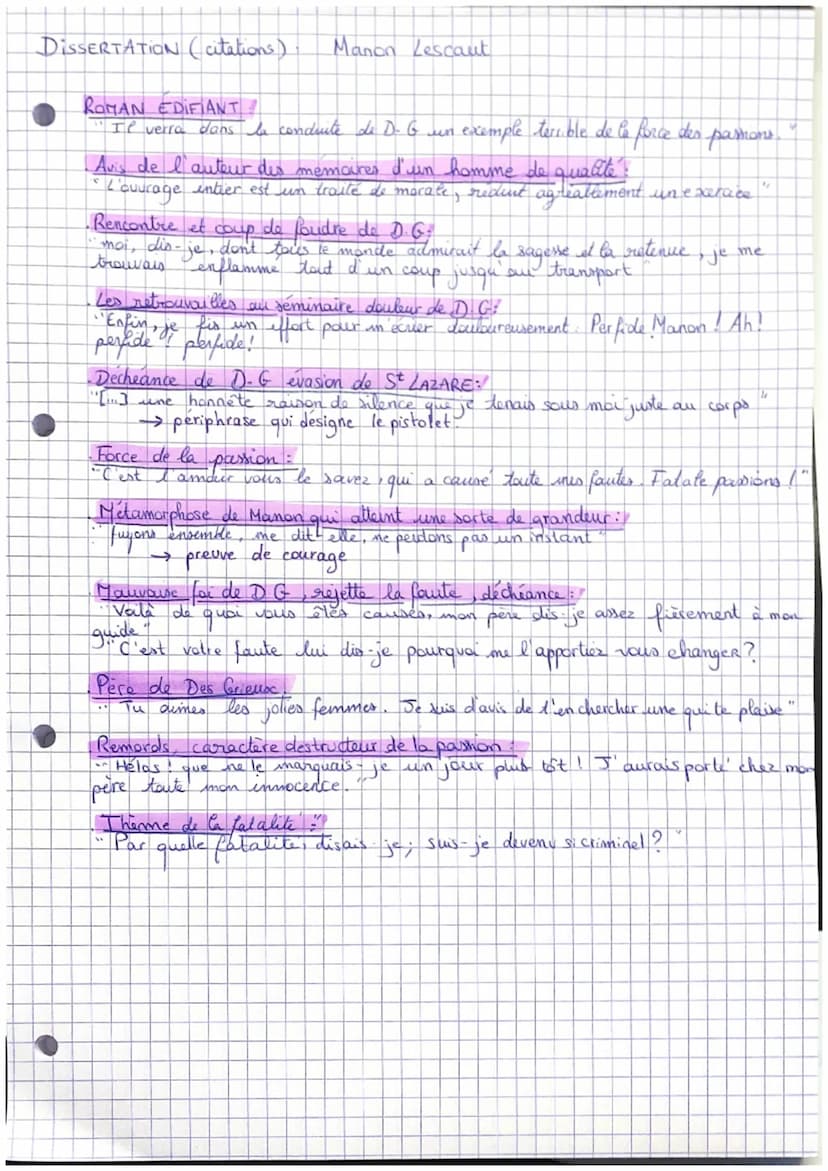 DISSERTATION (citations): Manon Lescaut
ROMAN EDIFIANT:
"Il verra dans la conduite de D-G un exemple terrible de la force des passions."
Avis de l'auteur des mémoires d'un homme de qualité:
"L'ouvrage entier est un traité de morale, réduit agréablement un exercice"
Rencontre et coup de foudre de D.G:
"moi, dis-je, dont tous le monde admirait la sagesse et la retenue, je me
trouvais enflamme tout d'un coup jusqu'au transport"
Les retrouvailles au séminaire douleur de D.G:
"Enfin, je fis un effort pour m'écrier douloureusement. Perfide Manon! Ah!
perfide! perfide!
Déchéance de D-G évasion de St LAZARE:
"[...] une honnête raison de silence que je tenais sous moi juste au corps"
→ périphrase qui désigne le pistolet.
Force de la passion:
"C'est l'amour vous le savez, qui a causé toute mes fautes. Fatale passions!"
Métamorphose de Manon qui atteint une sorte de grandeur:
"fuyons ensemble, me dit-elle, ne perdons pas un instant"
→ preuve de courage
Mauvaise foi de D G, rejette la faute, déchéance:
"Voilà de quoi vous êtes causes, mon père dis-je assez fièrement à mon
guide"
"C'est votre faute lui dis-je pourquoi me l'apportiez vous changer?
Père de Des Grieux:
"Tu aimes les jolies femmes. Je suis d'avis de t'en chercher une qui te plaise"
Remords, caractère destructeur de la passion:
"Hélas! que ne le marquais-je un jour plus tôt! J'aurais porté chez mon
père toute mon innocence."
Thème de la fatalité:
"Par quelle fatalité, disais-je; suis-je devenu si criminel?"